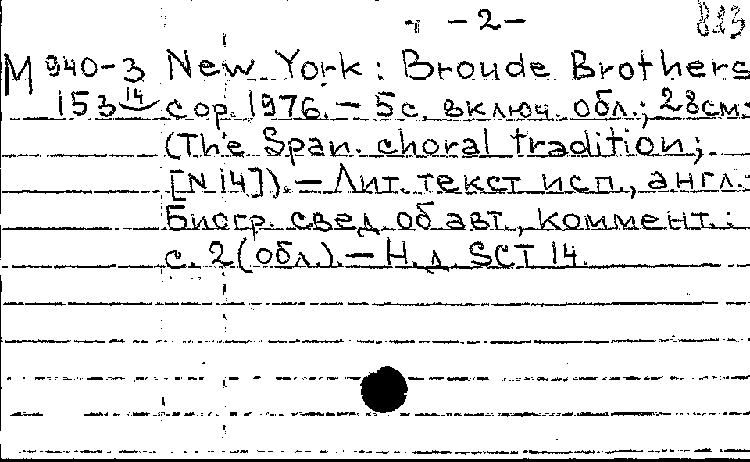 - 2 -
M 940-3 New York: Broude Brothers
153 14 cop. 1976. — 5 с. включ. обл.; 28 см.
(The Span. choral tradition;
[N 14]). — Лит. текст исп., англ.
Биогр. свед. об авт., коммент.:
с. 2 (обл.). — Н. д. SCT 14.